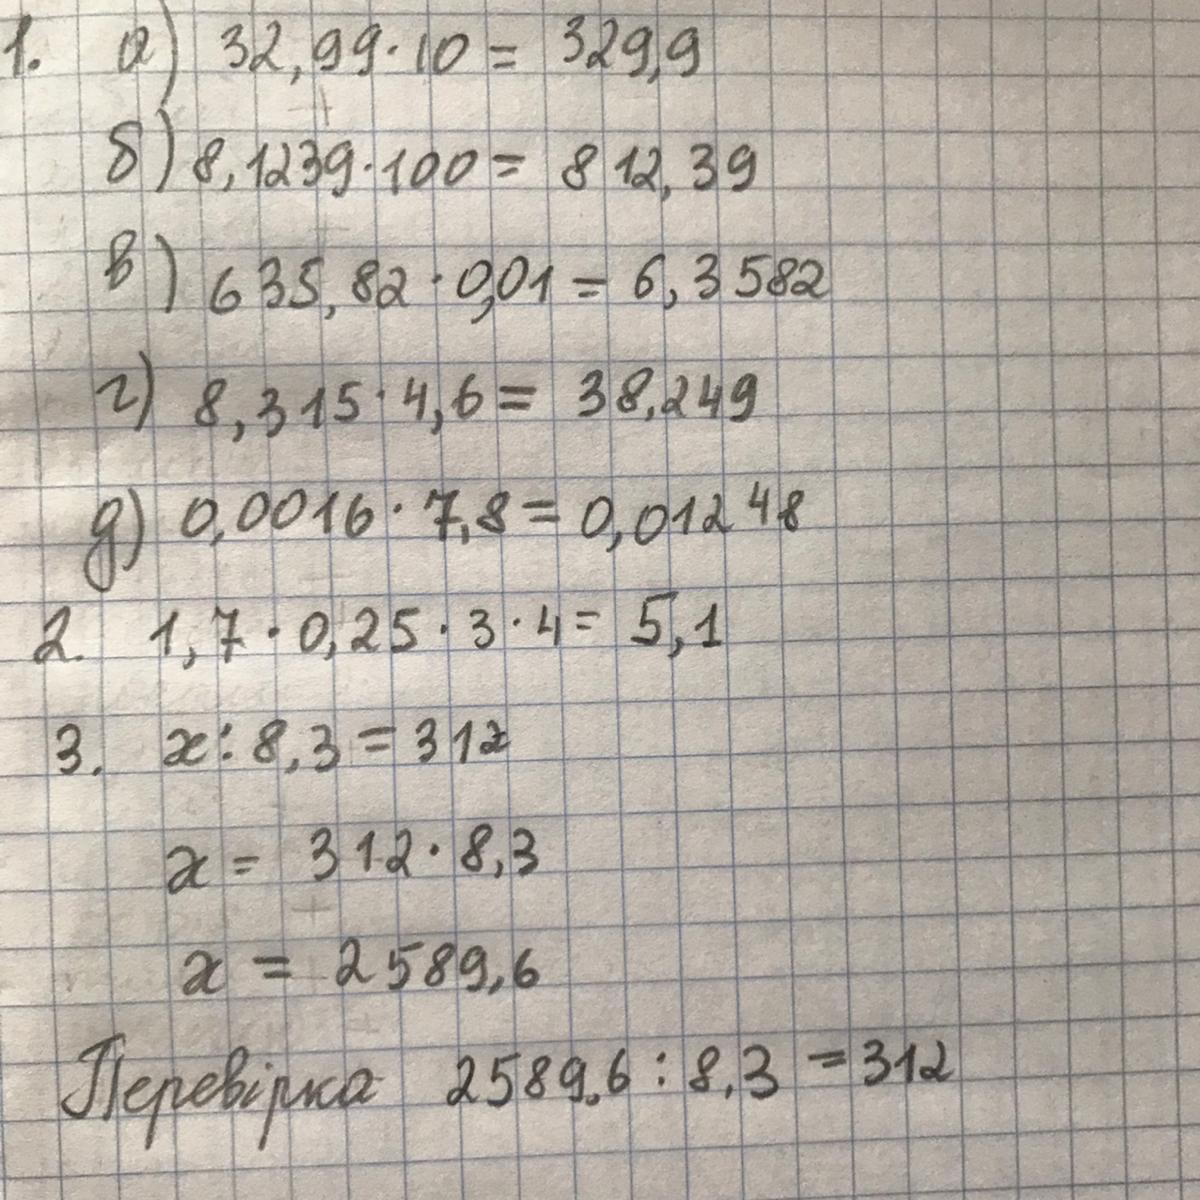 1. а) 32,99·10 = 329,9
б) 8,1239·100 = 812,39
в) 635,82·0,01 = 6,3582
г) 8,315·4,6 = 38,249
д) 0,0016·7,8 = 0,01248
2. 1,7·0,25·3·4 = 5,1
3. x:8,3 = 312
x = 312·8,3
x = 2589,6
Перевірка 2589,6:8,3 = 312